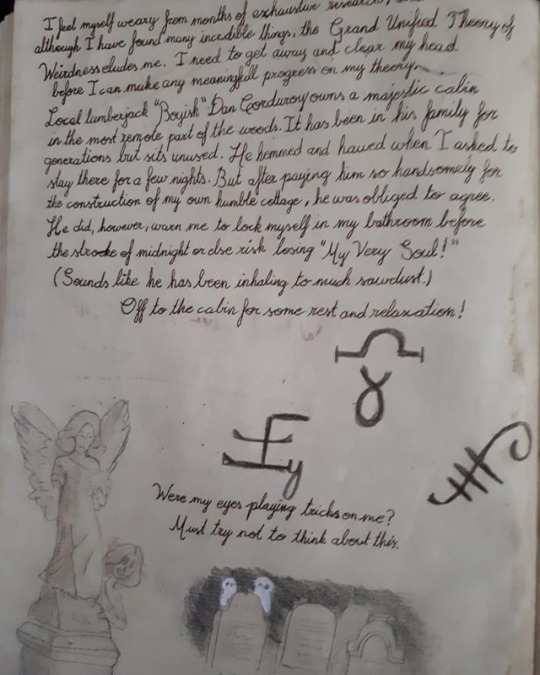 I feel myself weary from months of exhaustive research, and
although I have found many incredible things, the Grand Unified Theory of
Weirdness eludes me. I need to get away and clear my head
before I can make any meaningful progress on my theory.
Local lumberjack "Boyish" Dan Corduroy owns a majestic cabin
in the most remote part of the woods. It has been in his family for
generations but sits unused. He hemmed and hawed when I asked to
stay there for a few nights. But after paying him so handsomely for
the construction of my own humble cottage, he was obliged to agree.
He did, however, warn me to lock myself in my bathroom before
the stroke of midnight or else risk losing "My Very Soul!"
(Sounds like he has been inhaling to much sawdust.)
Off to the cabin for some rest and relaxation!
Were my eyes playing tricks on me?
Must try not to think about this.